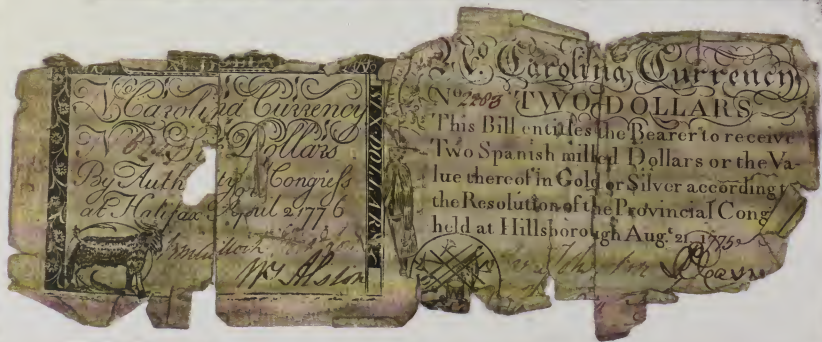 No Carolina Currency
No Six Dollars
By Authority of Congreſs
at Halifax April 2 1776
Wm Alston
SIX DOLLARS
No Carolina Currency
No 2283 TWO DOLLARS
This Bill entitles the Bearer to receive
Two Spanish milled Dollars or the Va-
lue thereof in Gold or Silver according t
the Resolution of the Provincial Cong
held at Hillsborough Aug.t 21 1775